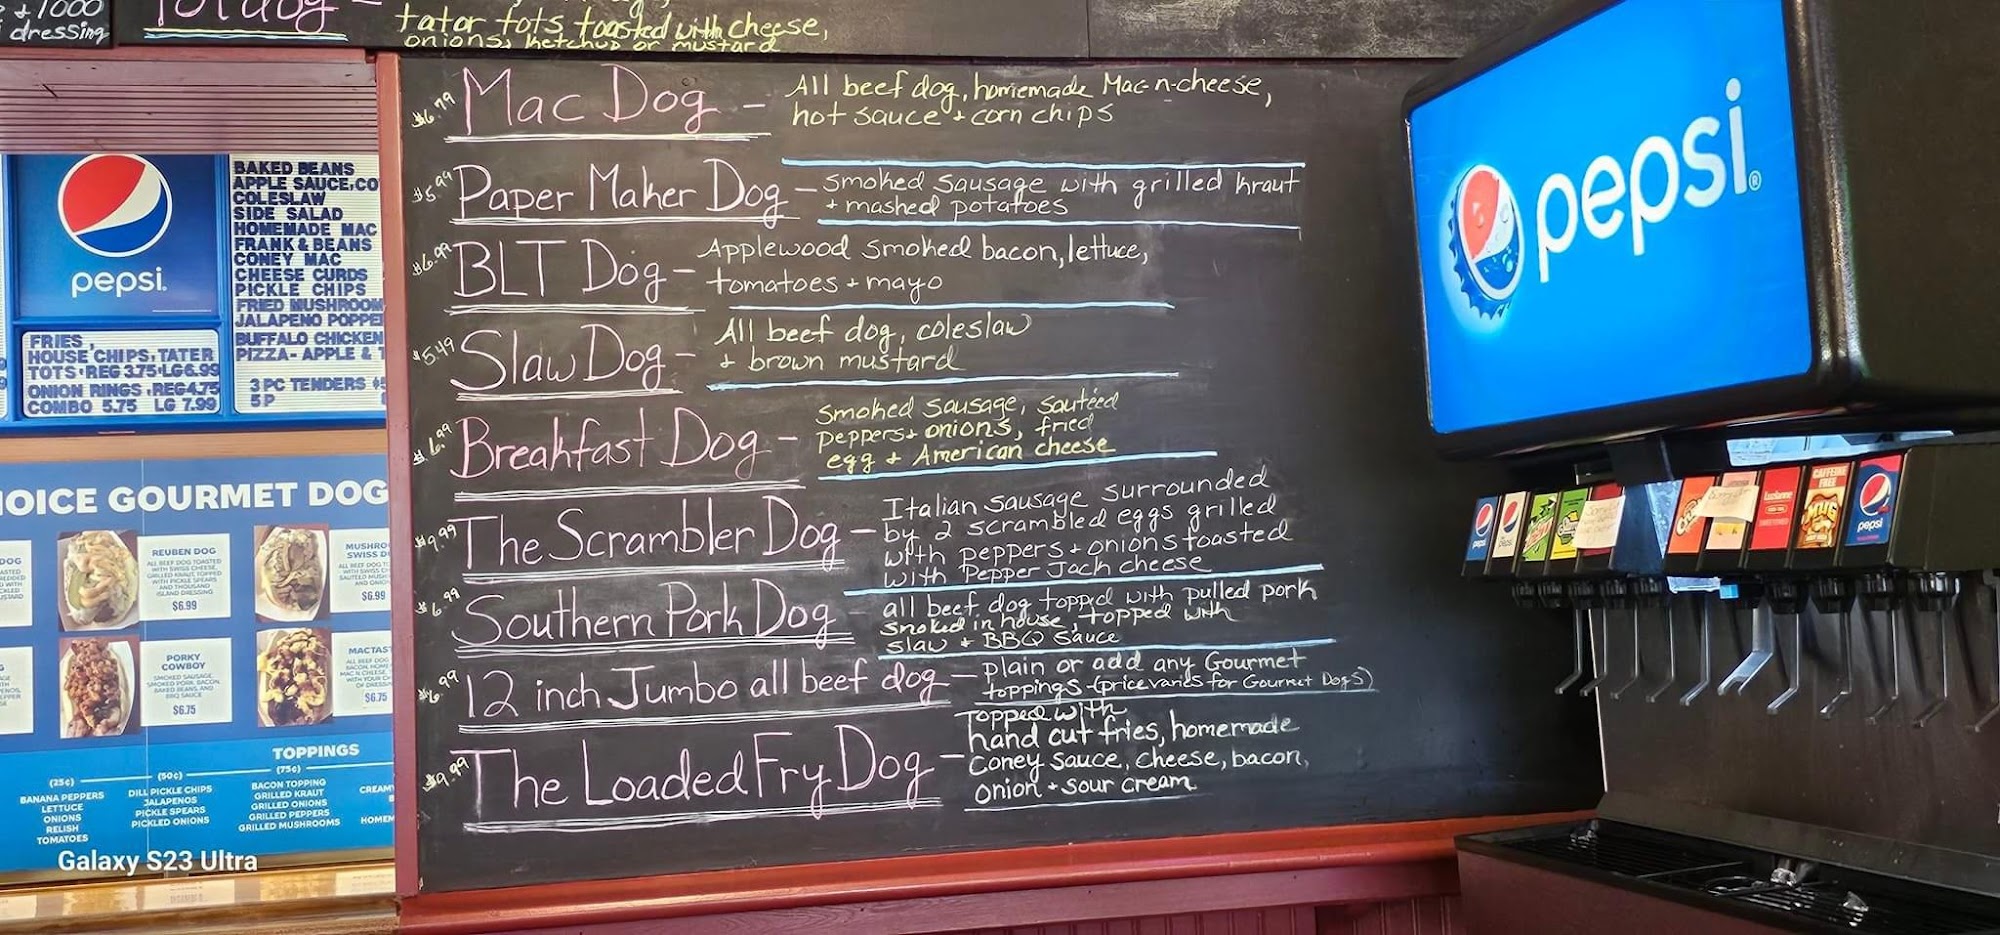 + 1000
dressing
tator tots toasted with cheese,
onions, ketchup or mustard
$6.79 Mac Dog - All beef dog, homemade Mac-n-cheese,
hot sauce + corn chips
$5.99 Paper Maker Dog - smoked sausage with grilled kraut
+ mashed potatoes
$6.99 BLT Dog - Applewood smoked bacon, lettuce,
tomatoes + mayo
$5.49 Slaw Dog - All beef dog, coleslaw
+ brown mustard
$6.99 Breakfast Dog - smoked sausage, sautéed
peppers + onions, fried
egg + American cheese
$9.99 The Scrambler Dog - Italian sausage surrounded
by 2 scrambled eggs grilled
with peppers + onions toasted
with Pepper Jack cheese
$6.99 Southern Pork Dog - all beef dog topped with pulled pork
smoked in house, topped with
slaw + BBQ sauce
$6.99 12 inch Jumbo all beef dog - plain or add any Gourmet
toppings - (price varies for Gourmet Dogs)
$9.99 The Loaded Fry Dog - Topped with
hand cut fries, homemade
coney sauce, cheese, bacon,
onion + sour cream
pepsi.
FRIES,
HOUSE CHIPS, TATER
TOTS • REG 3.75 • LG 6.99
ONION RINGS • REG 4.75
COMBO 5.75 LG 7.99
BAKED BEANS
APPLE SAUCE, CO
COLESLAW
SIDE SALAD
HOMEMADE MAC
FRANK & BEANS
CONEY MAC
CHEESE CURDS
PICKLE CHIPS
FRIED MUSHROOM
JALAPENO POPPE
BUFFALO CHICKEN
PIZZA - APPLE &
3 PC TENDERS
5 P
OICE GOURMET DOG
DOG
REUBEN DOG
ALL BEEF DOG TOASTED
WITH SWISS CHEESE,
GRILLED KRAUT, TOPPED
WITH PICKLE SPEARS
AND THOUSAND
ISLAND DRESSING
$6.99
MUSHRO
SWISS D
$6.99
PORKY
COWBOY
SMOKED SAUSAGE,
SMOKED PORK, BACON,
BAKED BEANS, AND
BBQ SAUCE
$6.75
MACTAS
$6.75
TOPPINGS
(25¢)
BANANA PEPPERS
LETTUCE
ONIONS
RELISH
TOMATOES
(50¢)
DILL PICKLE CHIPS
JALAPENOS
PICKLE SPEARS
PICKLED ONIONS
(75¢)
BACON TOPPING
GRILLED KRAUT
GRILLED ONIONS
GRILLED PEPPERS
GRILLED MUSHROOMS
CREAM
HOMEM
Galaxy S23 Ultra
pepsi
pepsi
CAFFEINE
FREE
MUG
pepsi